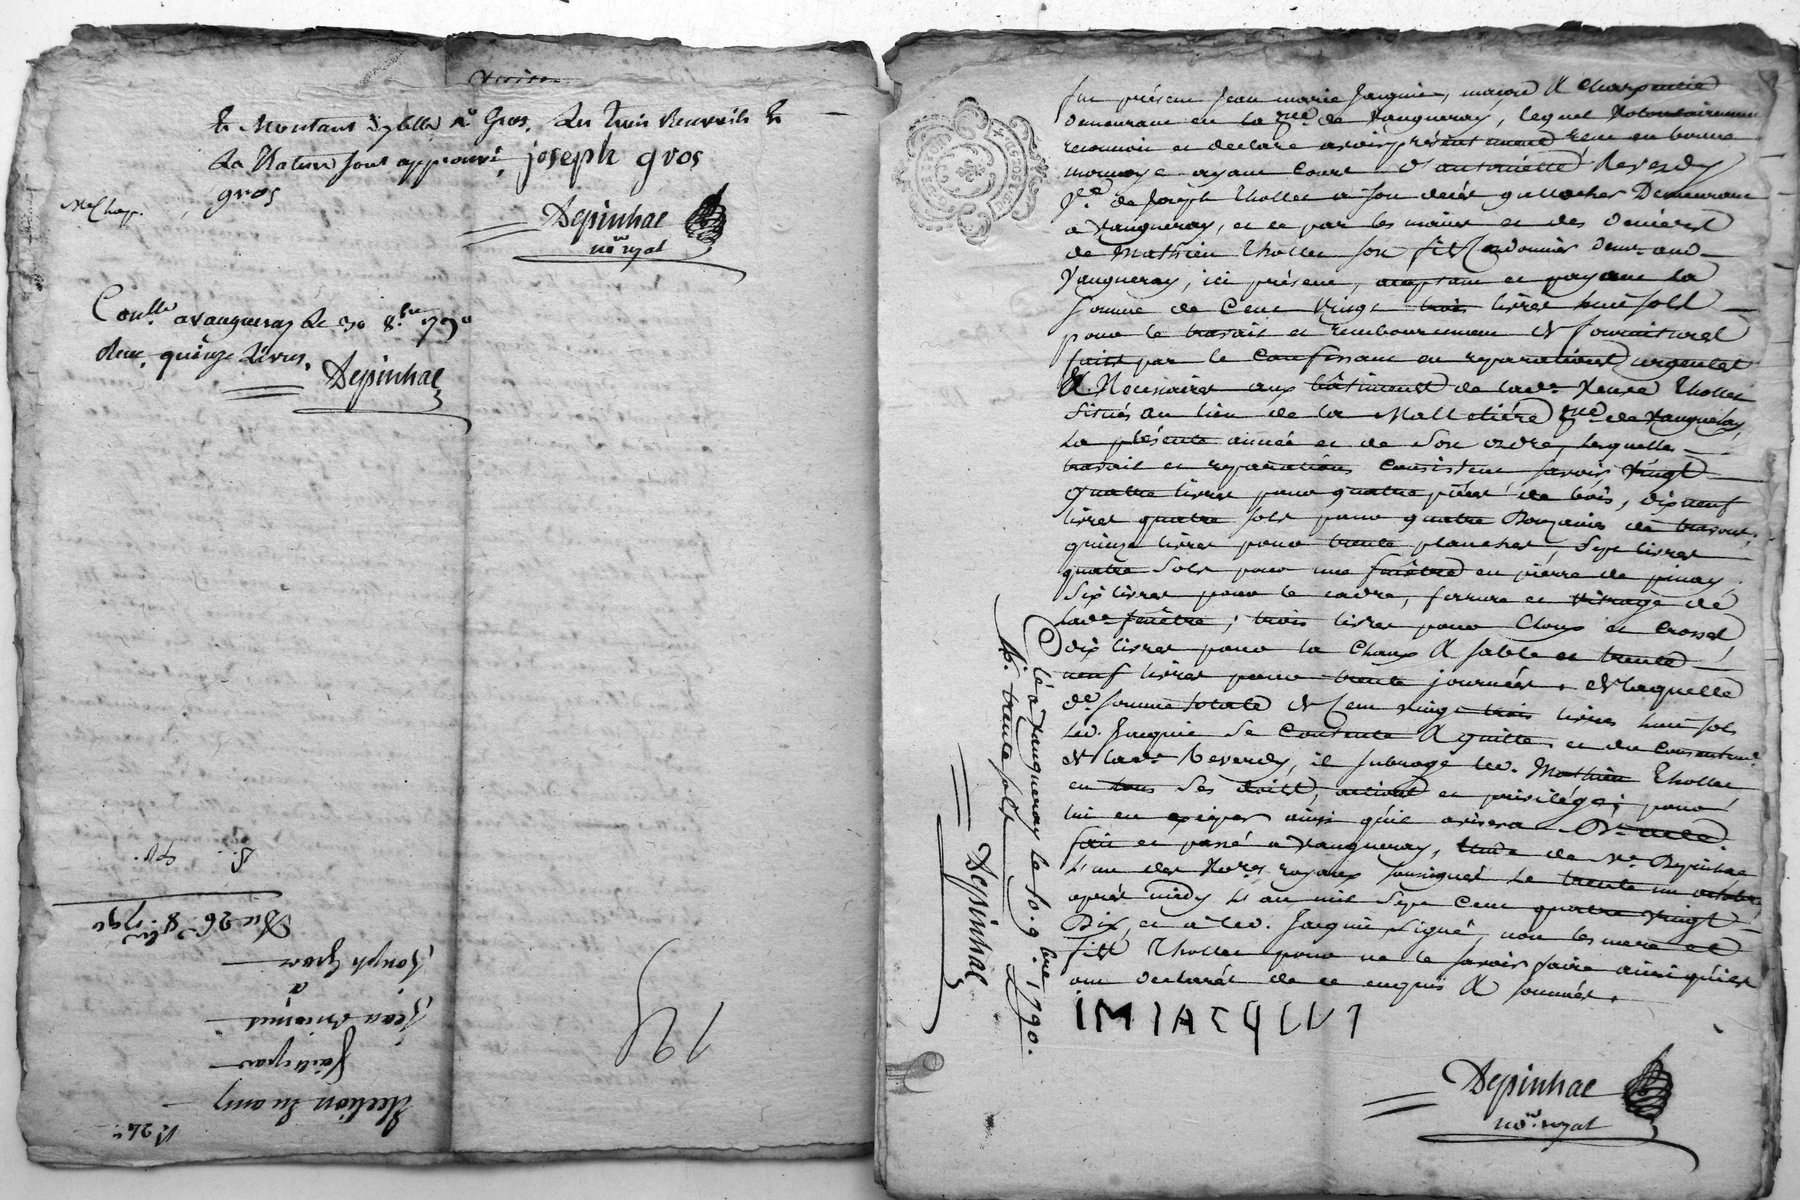 Le Montant d'icelle
La Nation sont approuvé, joseph gros
gros
Depinhac
no.re royal
Con.llé a vaugneray le 30 8.bre 1790
Reçu quinze Livres.
Depinhac
Du 26 8.bre 1790
Joseph Gros
à
Jean
Election En amy
N. 24
19
fut présent Jean marie Jacquie, maçon & charpentié
demeurant en la p.sse de Vaugneray, lequel Volontairement
reconnoit et declare avoir présentement reçu en bonne
monnoye ayant cours d'antoinette Reverdy
V.e de Joseph Thollet a son décès Demeurant
a Vaugneray, et ce par les mains et des deniers
de Mathieu Thollet son fils Cordonnier dem.ant aud.
Vaugneray, ici présent, acceptant et payant la
somme de Cent Vingt trois livres huit sols
pour le travail et remboursement de fournitures
faits par le Confessant en reparations urgentes
& Necessaires aux bâtiments de lad.e Veuve Thollet
Situés au lieu de la Malletière p.sse de Vaugneray
la présente année et de Son ordre, lesquelles
travail et reparations Consistent savoir Vingt
quatre livres pour quatre pièces de bois, dix neuf
livres quatre sols pour quatre Douzaines de travons,
quinze livres pour trente planches, Sept livres
quatre Sols pour une fenêtre en pierre de pinay,
Six livres pour le cadre, ferrure et vitrage de
lad.e fenêtre ; trois livres pour Cloux et Crosses
dix livres pour la Chaux & sable et trente
neuf livres pour trente journées. de laquelle
d.e somme totale de Cent vingt trois livres huit sols
led. Jacquie Se Contente & quitte et du Consentem.t
de lad.e Reverdy, il subroge led. Mathieu Thollet
en tous Ses droits, actions et privilèges pour
lui en exiger ainsi qu'il avisera D.t acte
fait et passé a Vaugneray, Etude de M.e Depinhac
L'un des No.res royaux soussignés Le trente un octobre
après midy L'an mil Sept Cent quatre vingt
Dix, et a led. Jacquie Signé, non les mere et
fils Thollet pour ne le savoir faire ainsi qu'ils
ont declarés de ce enquis & sommés.
IMIACQUI
Depinhac
no.re royal
C lé a Vaugneray le 10. 9.bre 1790.
R. trente sols
Depinhac